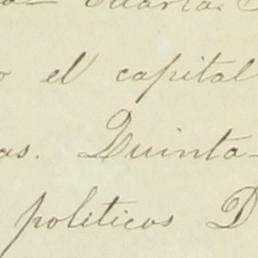 Cuarta.
o el capital
as. Quinta-
politicos D